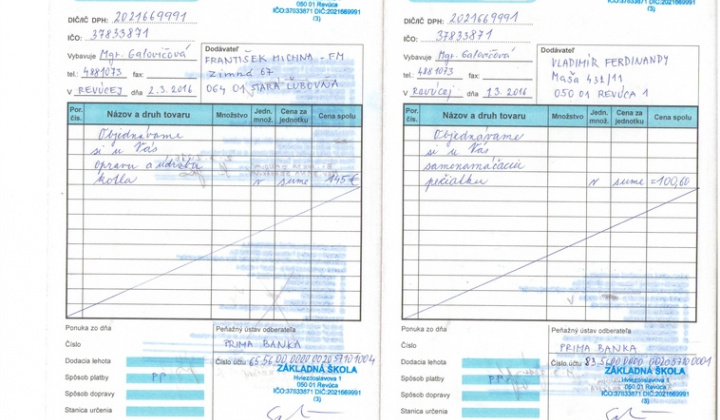 050 01 Revúca
IČO:37833871 DIČ:2021669991
(3)
DIČ/IČ DPH: 2021669991
IČO: 37833871
Vybavuje Mgr. Gaľovičová
tel.: 4881073 fax:
V REVÚCEJ dňa 2.3.2016
Dodávateľ
FRANTIŠEK MICHNA - FM
Zimná 67
064 01 STARÁ ĽUBOVŇA
Por. čís.
Názov a druh tovaru
Množstvo
Jedn. množ.
Cena za jednotku
Cena spolu
Objednávame
si u Vás
opravu a údržbu
kotla v sume 145€
Ponuka zo dňa
Číslo
Dodacia lehota
Spôsob platby PP
Spôsob dopravy
Stanica určenia
Peňažný ústav odberateľa
PRIMA BANKA
Číslo účtu
ZÁKLADNÁ ŠKOLA
Hviezdoslavova 1
050 01 Revúca
IČO:37833871 DIČ:2021669991
(3)
IČO:37833871 DIČ:2021669991
(3)
DIČ/IČ DPH: 2021669991
IČO: 37833871
Vybavuje Mgr. Gaľovičová
tel.: 4881073 fax:
V REVÚCEJ dňa 1.3.2016
Dodávateľ
VLADIMÍR FERDINANDY
Maša 431/11
050 01 REVÚCA 1
Por. čís.
Názov a druh tovaru
Množstvo
Jedn. množ.
Cena za jednotku
Cena spolu
Objednávame
si u Vás
samonamáčaciu
pečiatku v sume =100,60
Ponuka zo dňa
Číslo
Dodacia lehota
Spôsob platby PP
Spôsob dopravy
Stanica určenia
Peňažný ústav odberateľa
PRIMA BANKA
Číslo účtu
ZÁKLADNÁ ŠKOLA
Hviezdoslavova 1
050 01 Revúca
IČO:37833871 DIČ:2021669991
(3)